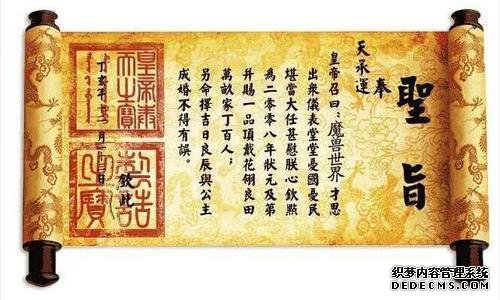 聖旨
奉
天承運
皇帝召曰:魔兽世界才思
出衆儀表堂堂憂國憂民
堪當大任甚慰朕心欽點
為二〇〇八年狀元及第
并賜一品頂戴花翎良田
萬畝家丁百人;
另命擇吉日良辰與公主
成婚不得有誤。
欽此
丁亥年
织梦内容管理系统
DEDECMS.COM